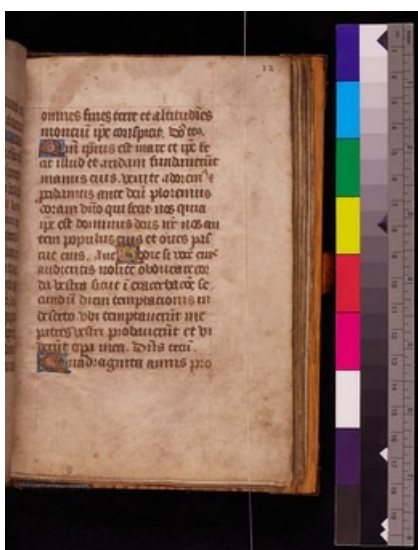 12
omnes fines terre et altitudīes
montiū ip̄e conspicit. Dn̄s tec.
Qm̄ ip̄ius est mare et ip̄e fe
cit illud et aridam fundaverūt
manus eius. venite adorem9 et
pcidamus ante deū ploremus
coram dn̄o qui fecit nos quia
ip̄e est dominus deus nr̄ nos au
tem populus eius et oves pas
cue eius. Aue Hodie si voce eius
audieritis nolite obdurare cor
da vestra sicut ī exacerbacōe se
cundū diem temptacionis in
deserto vbi temptaverūt me
patres vestri probaverūt et vi
derūt opa mea. Dn̄s tecū.
Quadraginta annis pro